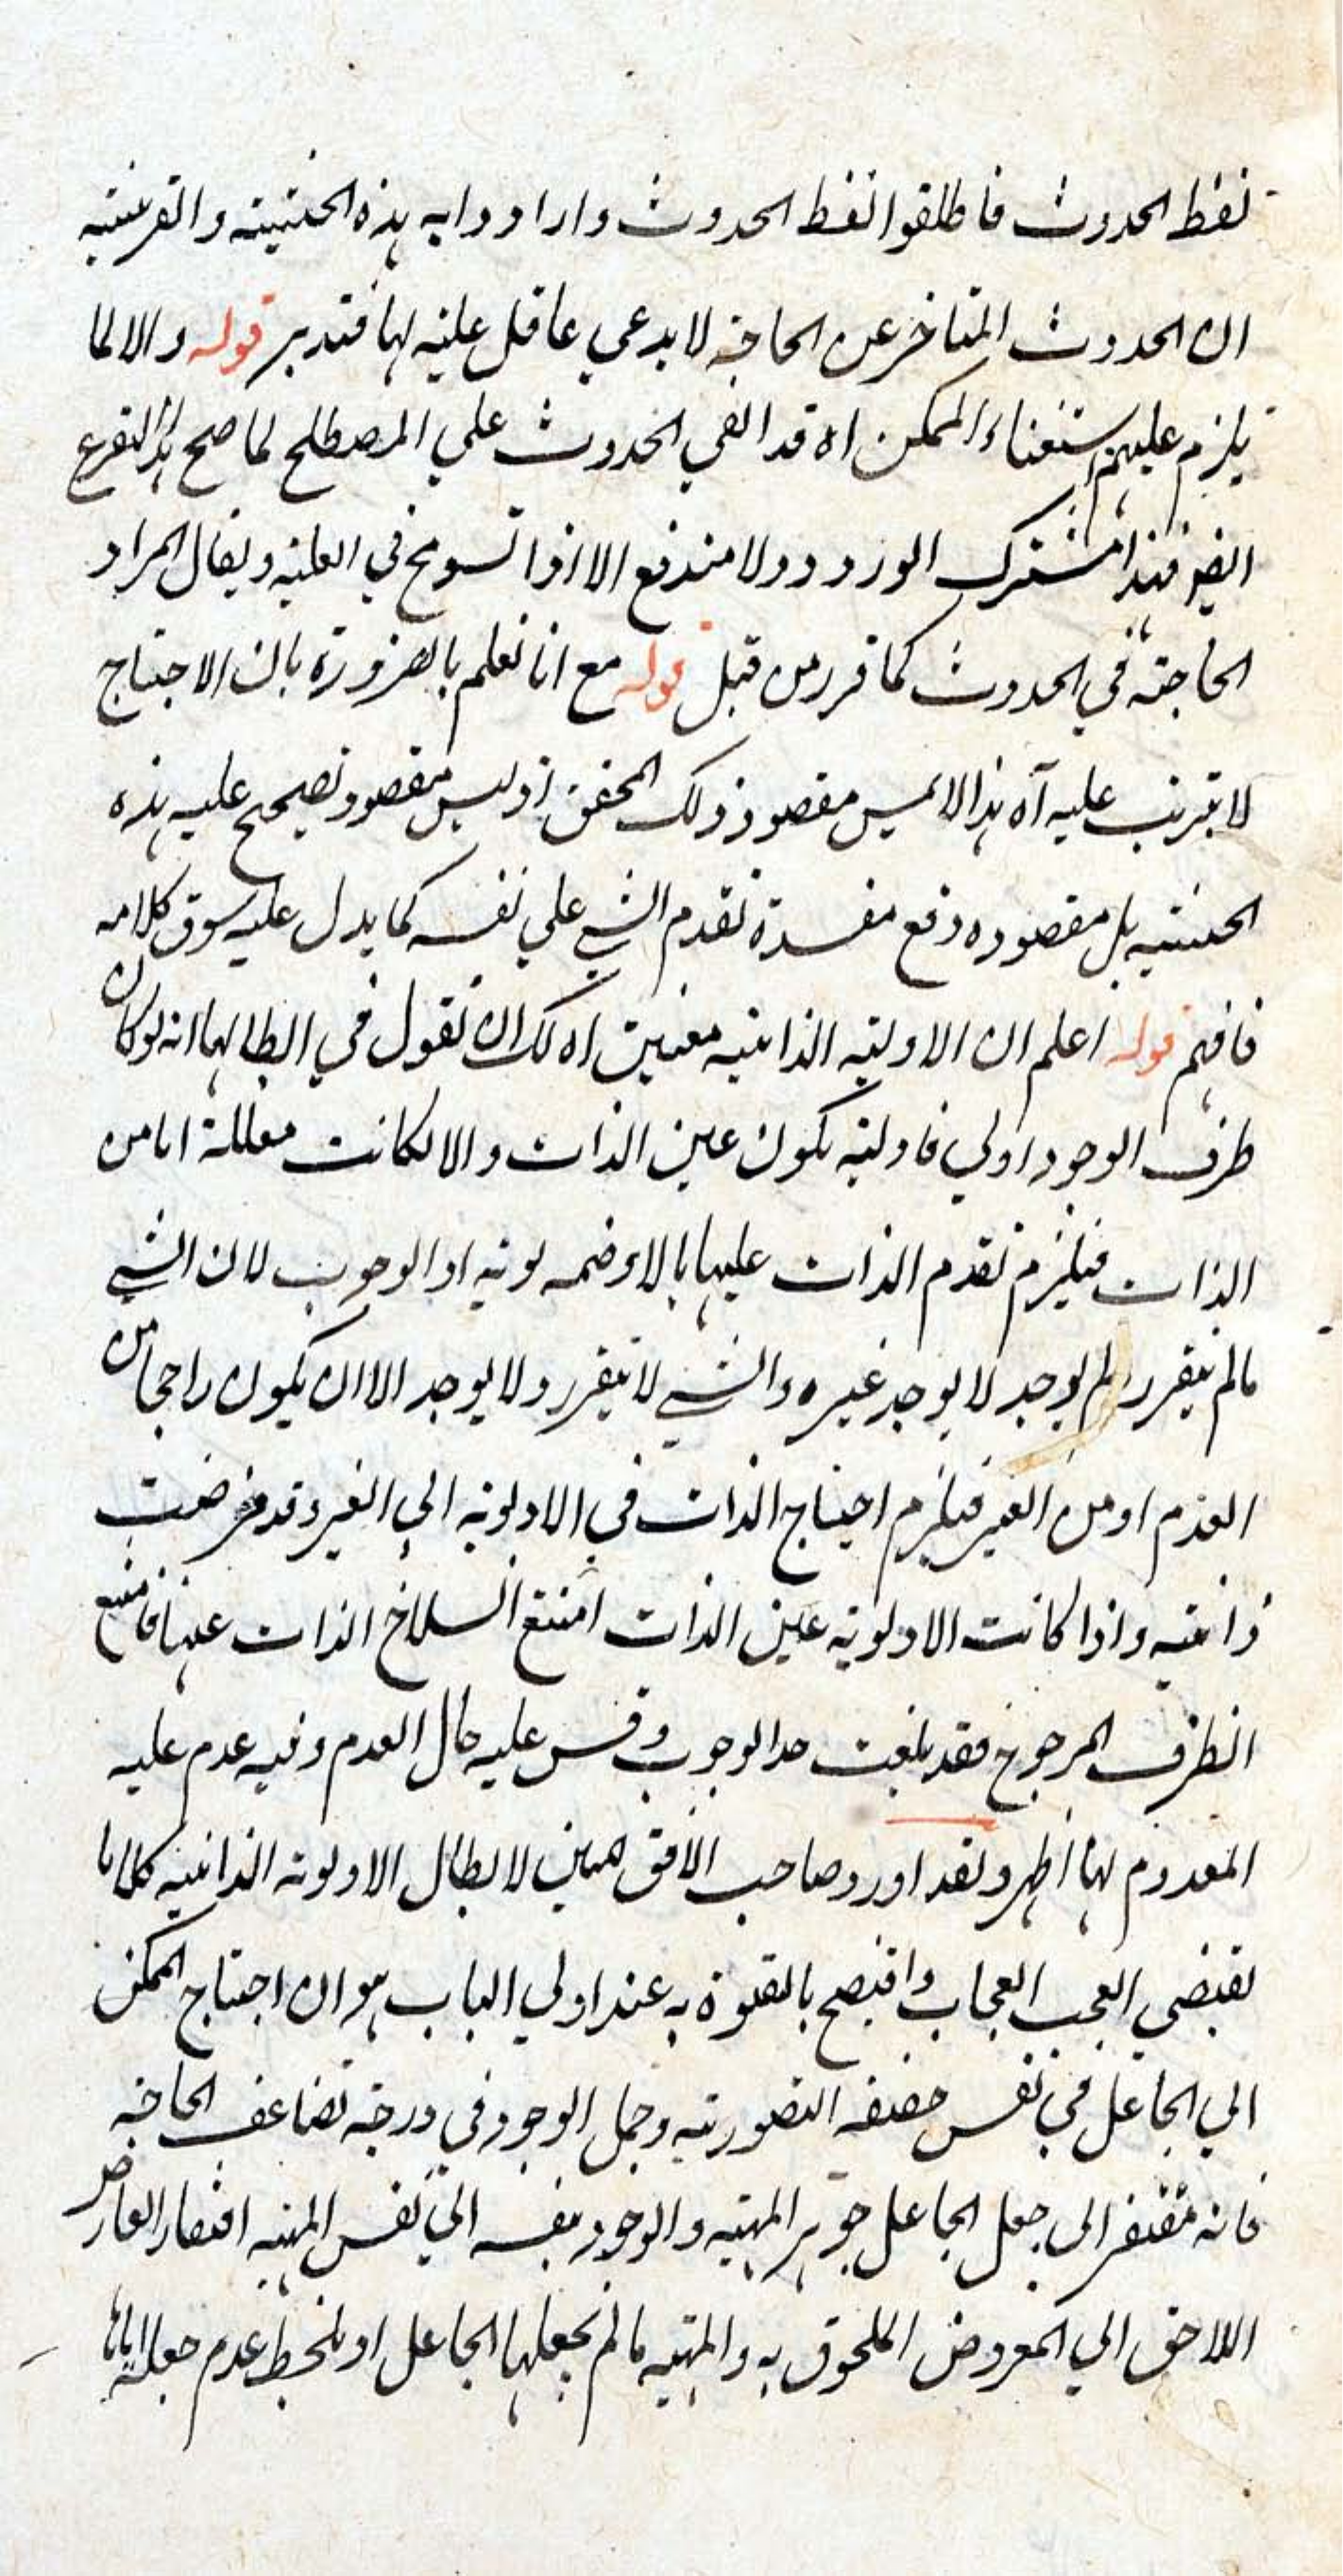 لفظ الحدوث فاطلقوا لفظ الحدوث وارادوا به هذه الحيثية والقرينة
ان الحدوث المتاخر عن الحاجة لا يدعي عاقل علية لها فتدبر قوله والا لما
يلزم عليهم استغناء الممكن اه قد الحدوث علي المصطلح لما صح هذا التفرع
ايضا فهذا مشترك الورود ولا مندفع الا اذا تسومح في العلية ويقال المراد
الحاجة في الحدوث كما قرر من قبل قوله مع انا نعلم بالضرورة بان الاحتياج
لا يترتب عليه آه هذا لا ليس مقصود ذلك المحقق اذ ليس مقصود تصحيح علية هذه
الحيثية بل مقصوده دفع مفسدة تقدم الشي علي نفسه كما يدل عليه سوق كلامه
فافهم قوله اعلم ان الاولية الذاتية معنيين اه لك ان تقول في ابطالها انه لو كان
طرف الوجود اولي فاولية يكون عين الذات والا لكانت معللة اما من
الذات فيلزم تقدم الذات عليها بالا لوية او الوجوب لان الشي
ما لم يتقرر ولم يوجد لا يوجد غيره والشي لا يتقرر ولا يوجد الا ان يكون راجحا من
العدم او من الغير فيلزم احتياج الذات في الاولوية الي الغير وقد فرضت
ذاتية واذا كانت الاولوية عين الذات امتنع انسلاخ الذات عنها فامتنع
الطرف المرجوح فقد بلغت حد الوجوب وقس عليه حال العدم وفيه عدم علية
المعدوم لها اظهر ولقد اورد صاحب الافق المبين لابطال الاولوية الذاتية كلاما
يقتضي العجب العجاب وافتضح بالتفوه به عند اولي الباب هو ان احتياج الممكن
الي الجاعل في نفس حقيقة التصورية وحمل الوجود في درجة تضاعف الحاجة
فانه مفتقر الى جعل الجاعل جوهر المهية والوجود بنفسه الي نفس المهية افتقار العارض
اللاحق الي المعروض الملحوق به والمهية ما لم يجعلها الجاعل او يلحظ عدم جعله اياها